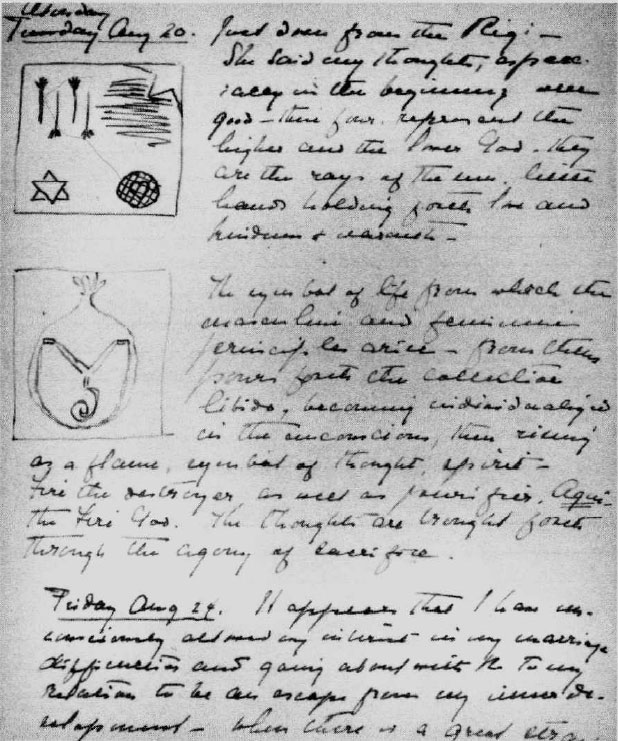 Tuesday
Tuesday Aug 20. Just down from the Rigi –
She said my thoughts, espec-
ially in the beginning were
good – their four represent the
higher and the lower God. They
are the rays of the sun, little
hands holding forth love and
kindness & warmth –
The symbol of life from which the
masculine and feminine
principles arise – from them
pours forth the collective
libido, becoming individualized
in the unconscious, then rising
as a flame, symbol of thought, spirit –
Fire the destroyer, as well as purifier. Agni –
the Fire God. The thoughts are brought forth
through the agony of sacrifice.
Friday Aug 24. It appears that I have un-
consciously allowed my interest in my marriage
difficulties and going about with to my
relation to be an escape from my inner de-
velopment – when there is a great